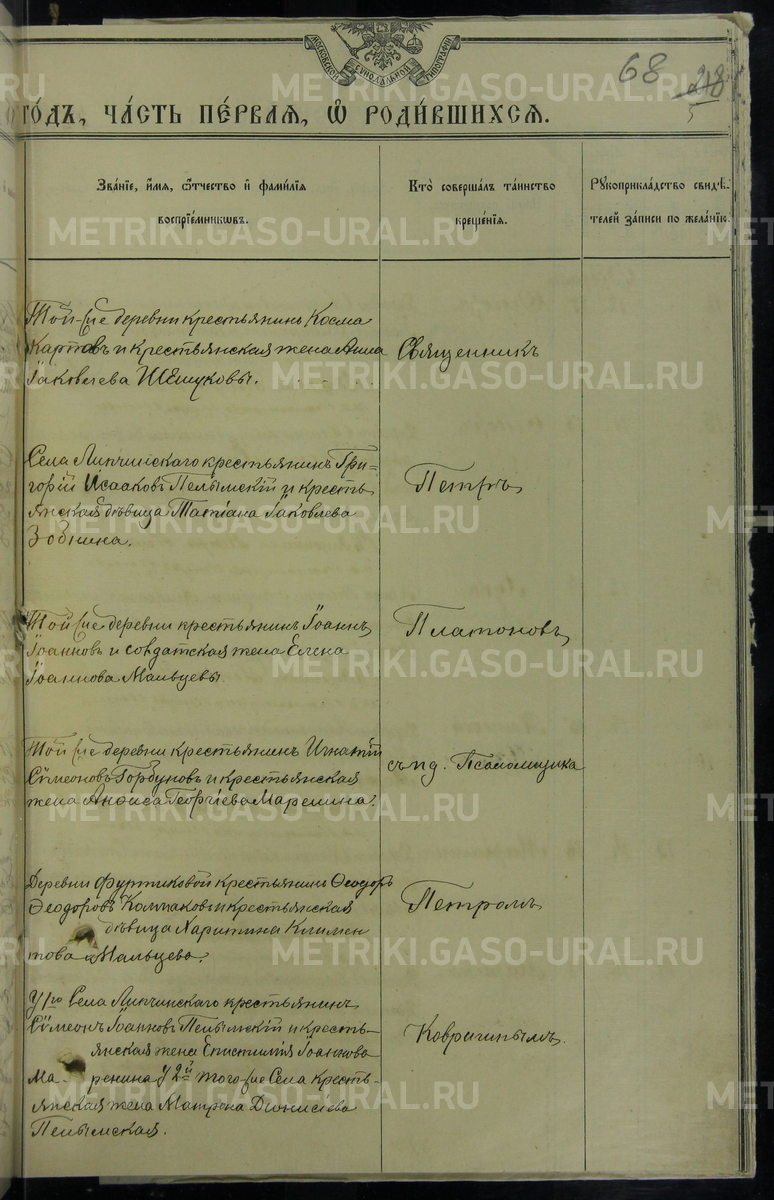 МОСКОВСКОЙ СѴНОДАЛЬНОЙ ТИПОГРАФІИ
68 218
5
METRIKI.GASO-URAL.RU
ГО́ДЪ, ЧА́СТЬ ПЕ́РВАЯ, Ѽ РОДИ́ВШИХСЯ.
Зва́нїе, и҆́мя, ѻ҆́тчество и҆ фами́лїя
воспрїе́мникѡвъ.
Кто̀ соверша́лъ та́инство
креще́нїя.
Рꙋкоприкла́дство свидѣ́-
телей за́писи по жела́нїю.
Той же деревни крестьянинъ Косма
Карповъ и крестьянская жена Анна
Іаковлева Шешуковы.
Священникъ
Села Липчинскаго крестьянинъ Гри=
горій Исааковъ Пелымскій и кресть
янская дѣвица Татіана Іаковлева
Зобнина.
Петръ
Той же деревни крестьянинъ Іоаннъ
Іоанновъ и солдатская жена Елена
Іоаннова Мальцевы
Платоновъ
Той же деревни крестьянинъ Игнатій
Сѵмеоновъ Горбуновъ и крестьянская
жена Анѳиса Георгіева Маренина.
съ и д. Псаломщика
Деревни Фуртиковой крестьянинъ Ѳеодоръ
Ѳеодоровъ Колмаковъ и крестьянская
дѣвица Харитина Климен
това Мальцева.
Петромъ
У 1го Села Липчинскаго крестьянинъ
Сѵмеонъ Іоанновъ Пелымскій и кресть-
янская жена Епистимія Іоаннова
Маренина У 2й того-же Села кресть-
янская жена Матрона Діонисіева
Пелымская.
Ковригинымъ.